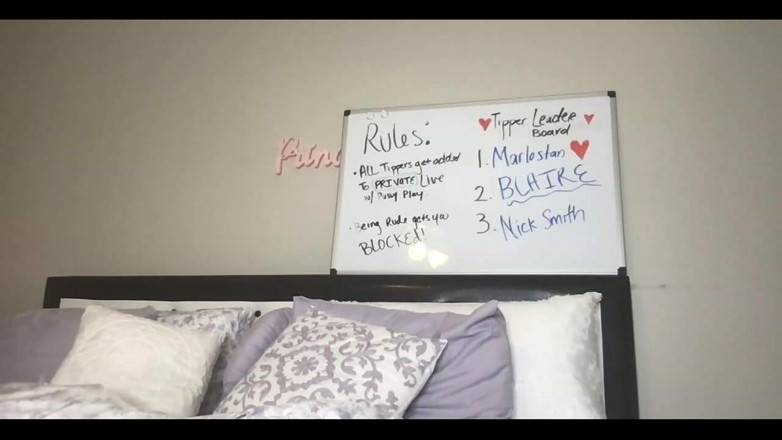 Princ
Rules:
• ALL Tippers get added
To PRIVATE Live
w/ Pussy Play.
• Being Rude gets you
BLOCKED!
Tipper Leader
Board
1. Marlostan
2. BLAIRE
3. Nick Smith